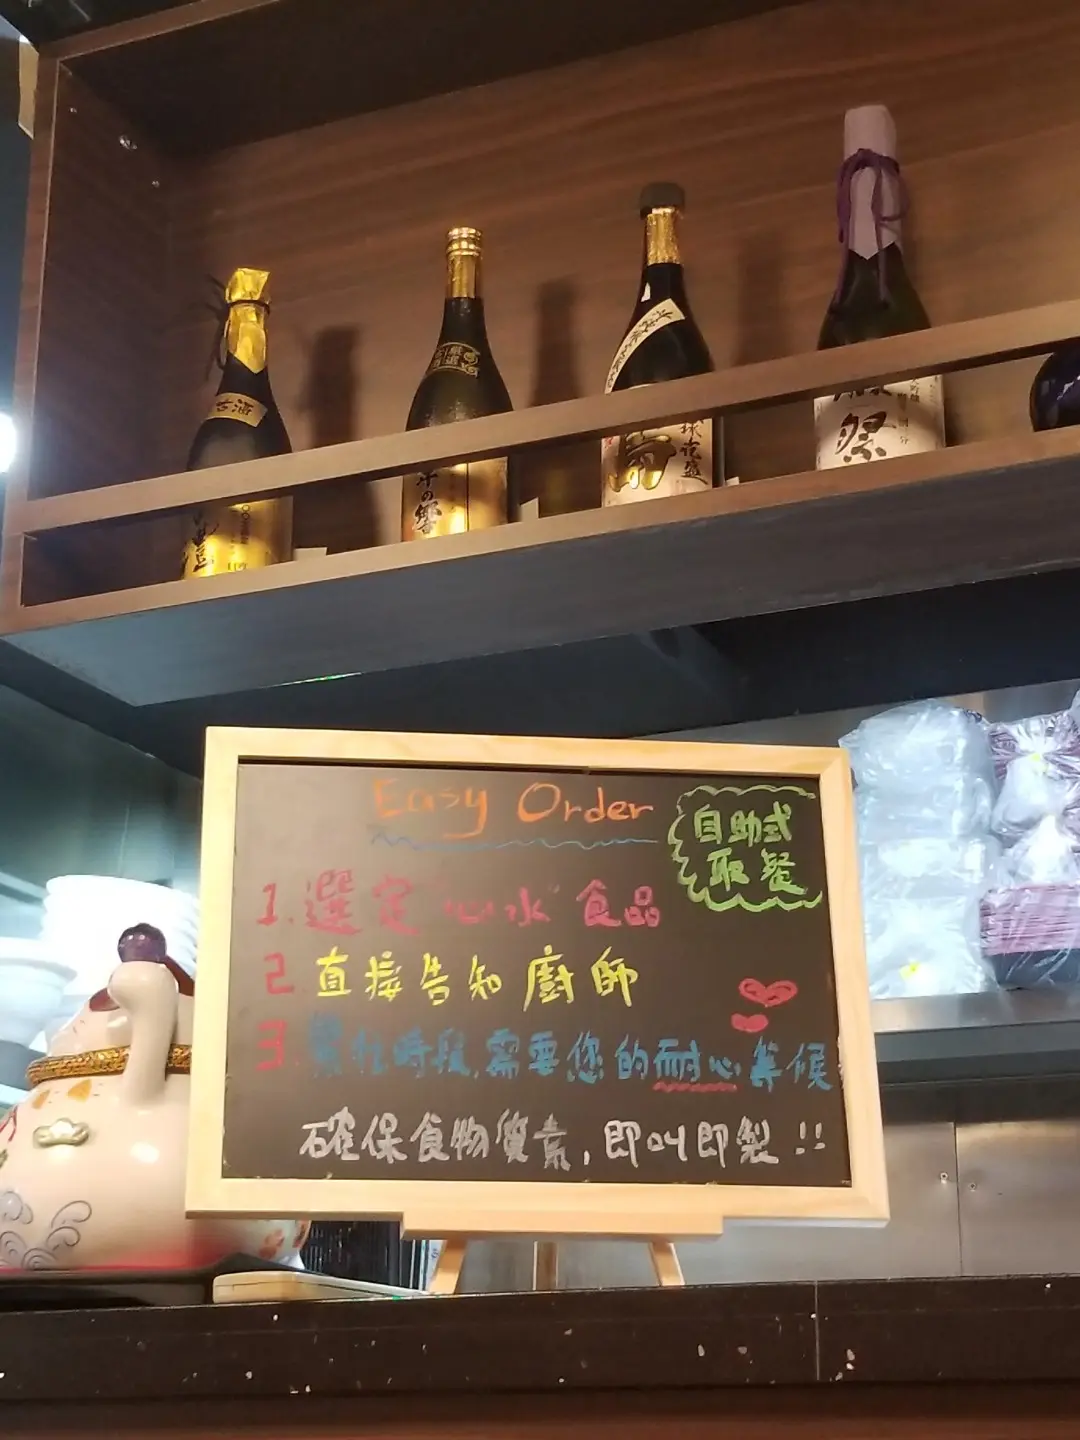 古酒
豊
の響
琉球花盛
獺祭
Easy Order
自助式
取餐
1. 選定"心水"食品
2. 直接告知廚師
3. 繁忙時段,需要您的耐心等候
確保食物質素,即叫即製!!